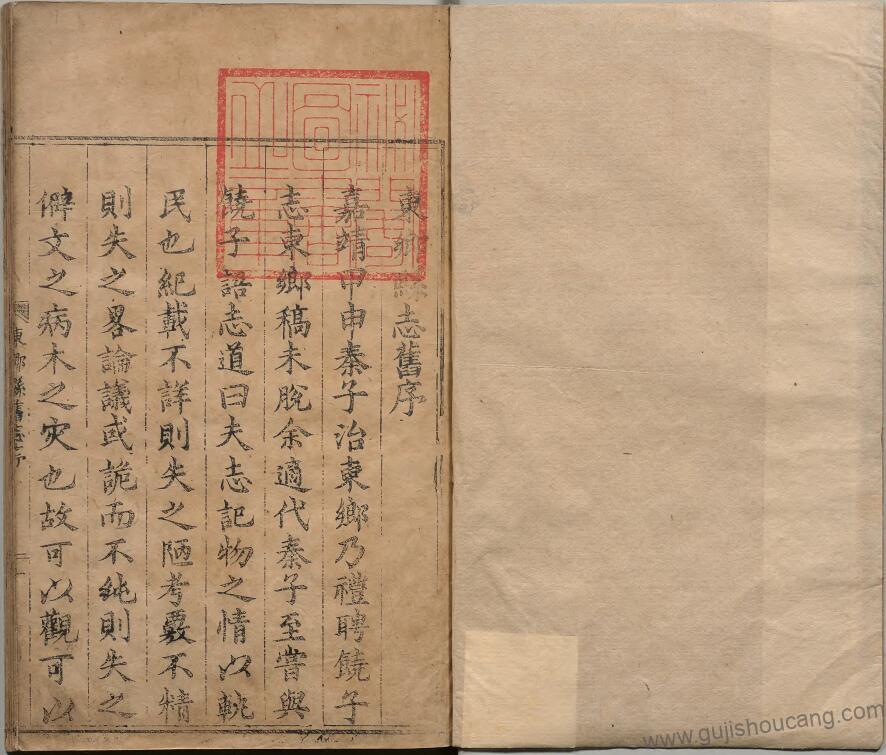 東鄉縣志舊序
嘉靖甲申秦子治東鄉乃禮聘饒子
志東鄉稿未脫余適代秦子至嘗與
饒子語志道曰夫志記物之情以軌
民也紀載不詳則失之陋考覈不精
則失之畧論議或詭而不純則失之
僻文之病木之灾也故可以觀可以
東鄉縣舊志序
www.gujishoucang.com